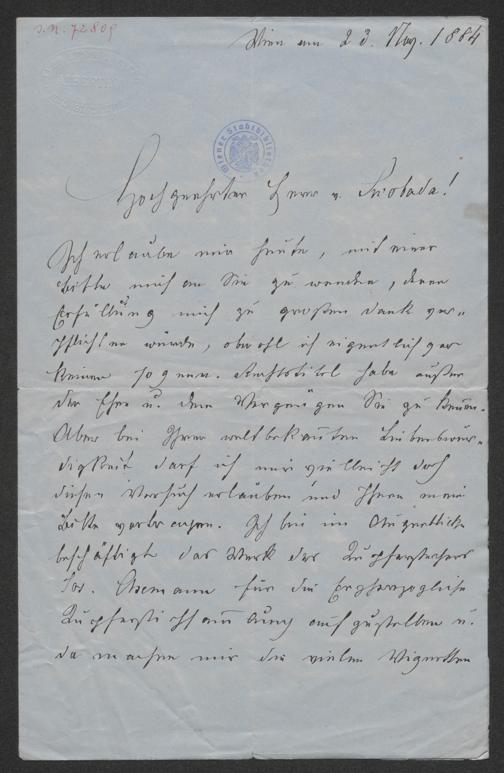 I.N. 72809
Wien am 23. Nov. 1884
Wiener Stadtbibliothek
Hochgeehrter Herr v. Svoboda!
Ich erlaube mir heute, mit einer
Bitte mich an Sie zu wenden, deren
Erfüllung mich zu großen Dank ver-
pflichten würde, obwohl ich eigentlich gar
keinen sogenn. Rechtstitel habe außer
der Ehre u. dem Vergnügen Sie zu kennen.
Aber bei Ihrer weltbekannten Liebenswür-
digkeit darf ich mir vielleicht doch
diesen Versuch erlauben und Ihnen meine
Bitte vorbringen. Ich bin im Augenblicke
beschäftigt das Werk des Kupferstechers
Jos. Axmann für die Erzherzogliche
Kupferstichsammlung aufzustellen u.
da machen mir die vielen Vignetten